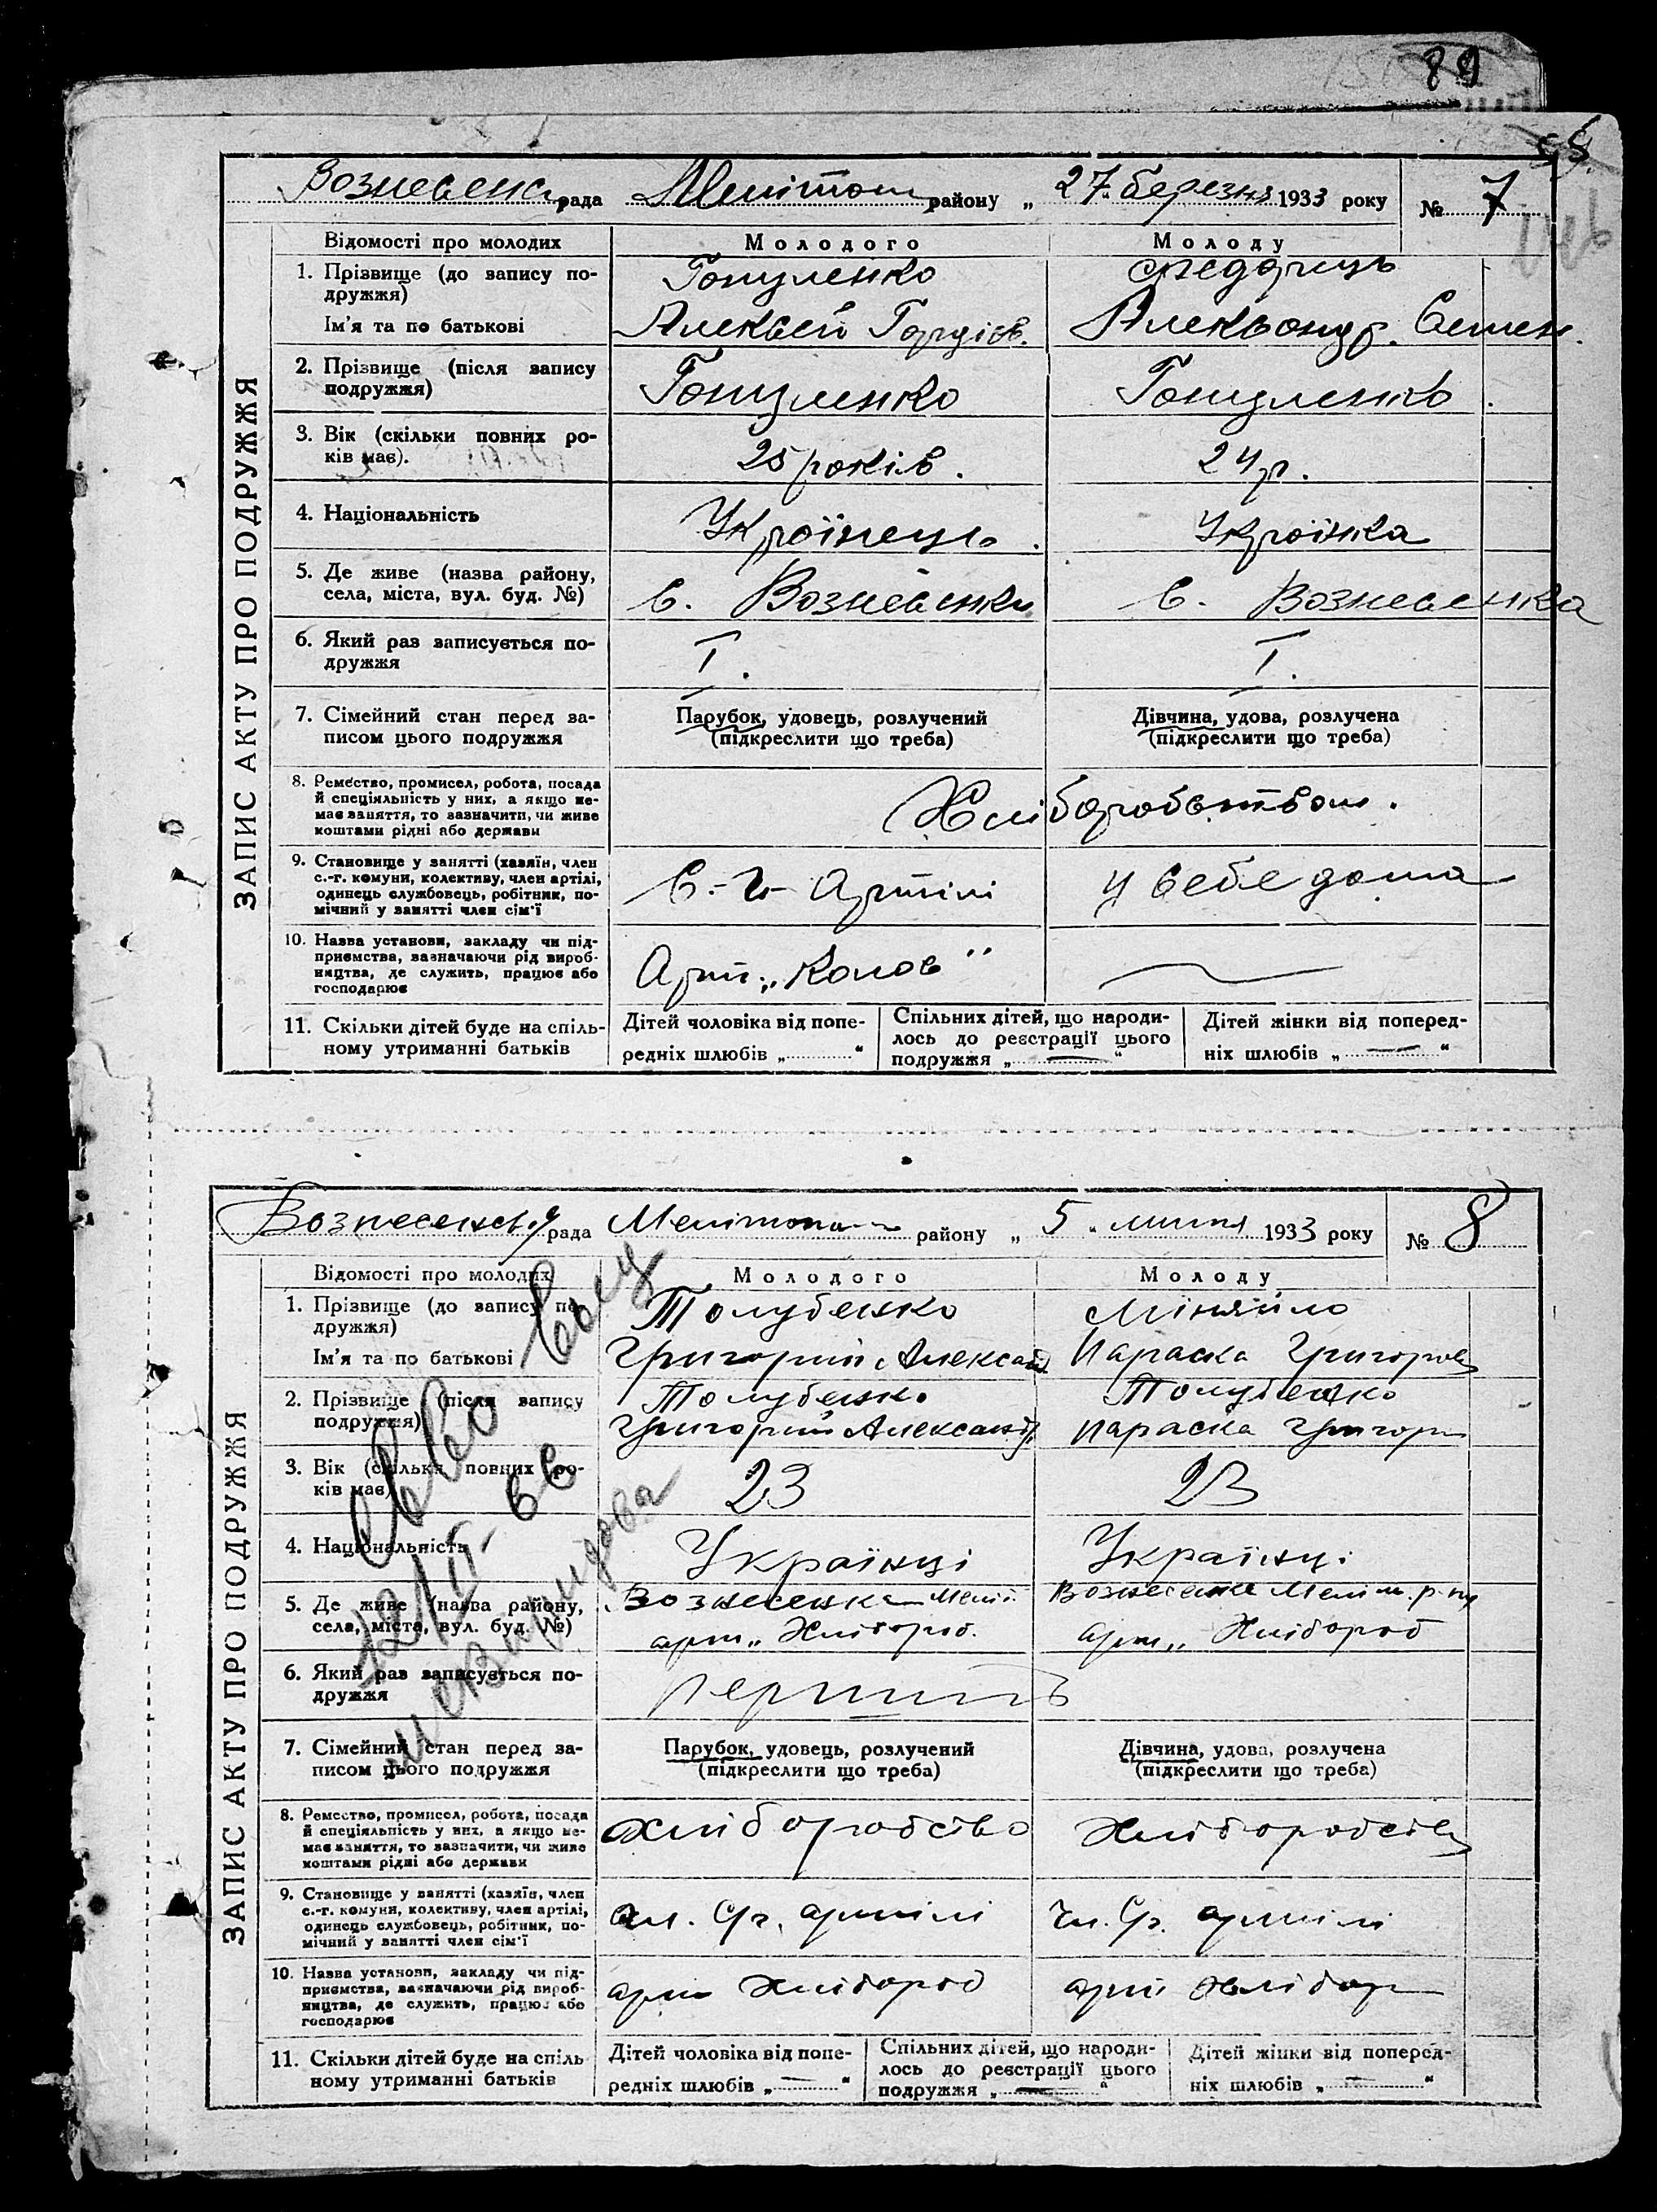 89
Вознесенс рада Меліто району „ 27. березня 1933 року № 7
ЗАПИС АКТУ ПРО ПОДРУЖЖЯ
Відомості про молодих Молодого Молоду
1. Прізвище (до запису подружжя)
Ім'я та по батькові Алексей Гордієв. Алексондр. Семен.
2. Прізвище (після запису подружжя)
3. Вік (скільки повних років має). 25 років. 24 р.
4. Національність Україинець. Українка
5. Де живе (назва району, села, міста, вул. буд. №) С. Вознесенки С. Вознесенка
6. Який раз записується подружжя I. I.
7. Сімейний стан перед записом цього подружжя Парубок, удовець, розлучений (підкреслити що треба) Дівчина, удова, розлучена (підкреслити що треба)
8. Ремество, промисел, робота, посада й спеціяльність у них, а якщо немає заняття, то зазначити, чи живе коштами рідні або держави Хліборобством.
9. Становище у занятті (хазяїн, член с.-г. комуни, колективу, член артілі, одинець службовець, робітник, помічний у занятті член сім'ї С.-г. Артілі у себе дома
10. Назва установи, закладу чи підприємства, зазначаючи рід виробництва, де служить, працює або господарює Арт. „Колос"
11. Скільки дітей буде на спільному утриманні батьків Дітей чоловіка від попередніх шлюбів „ “ Спільних дітей, що народилось до реєстрації цього подружжя „ — “ Дітей жінки від попередніх шлюбів „ — “
Вознесенська рада Мелітопол району „ 5 „ липня 1933 року № 8
ЗАПИС АКТУ ПРО ПОДРУЖЖЯ
Відомості про молодих Молодого Молоду
1. Прізвище (до запису подружжя) Толубенко Міняйло
Ім'я та по батькові Григорий Алексан Параска Григоров
2. Прізвище (після запису подружжя) Толубенко Толубенко
Григорий Александ. Параска Григор
3. Вік (скільки повних років має) 23 23
4. Національність Українці Українці
5. Де живе (назва району, села, міста, вул. буд. №) Вознесенка Меліт. Вознесенка Меліт. р-ну
арт „ Хлібороб. арт „ Хлібороб
6. Який раз записується подружжя Першить
7. Сімейний стан перед записом цього подружжя Парубок, удовець, розлучений (підкреслити що треба) Дівчина, удова, розлучена (підкреслити що треба)
8. Ремество, промисел, робота, посада й спеціяльність у них, а якщо немає заняття, то зазначити, чи живе коштами рідні або держави Хліборобство Хліборобств
9. Становище у занятті (хазяїн, член с.-г. комуни, колективу, член артілі, одинець службовець, робітник, помічний у занятті член сім'ї чл. с/г. артілі Чл. с/г. артілі
10. Назва установи, закладу чи підприємства, зазначаючи рід виробництва, де служить, працює або господарює арт Хлібороб арт Хлібор
11. Скільки дітей буде на спільному утриманні батьків Дітей чоловіка від попередніх шлюбів „ — “ Спільних дітей, що народилось до реєстрації цього подружжя „ — “ Дітей жінки від попередніх шлюбів „ — “